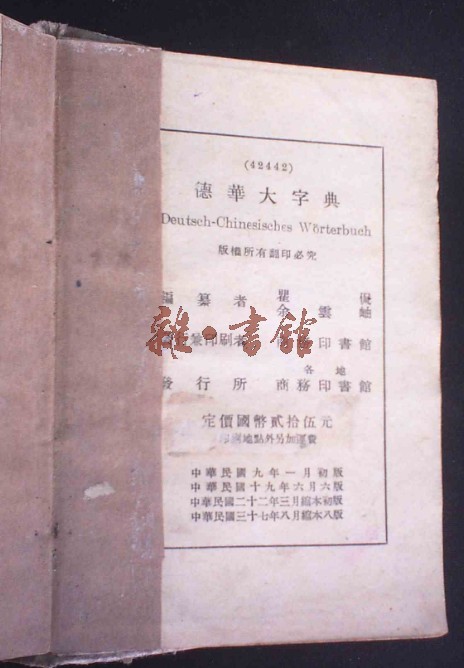 (42442)
德華大字典
Deutsch-Chinesisches Wörterbuch
版權所有翻印必究
編纂者 瞿
余雲岫
印刷者 印書館
雜·書館
各地
發行所 商務印書館
定價國幣貳拾伍元
地點外另加運費
中華民國九年一月初版
中華民國十九年六月六版
中華民國二十二年三月縮本初版
中華民國三十七年八月縮本八版